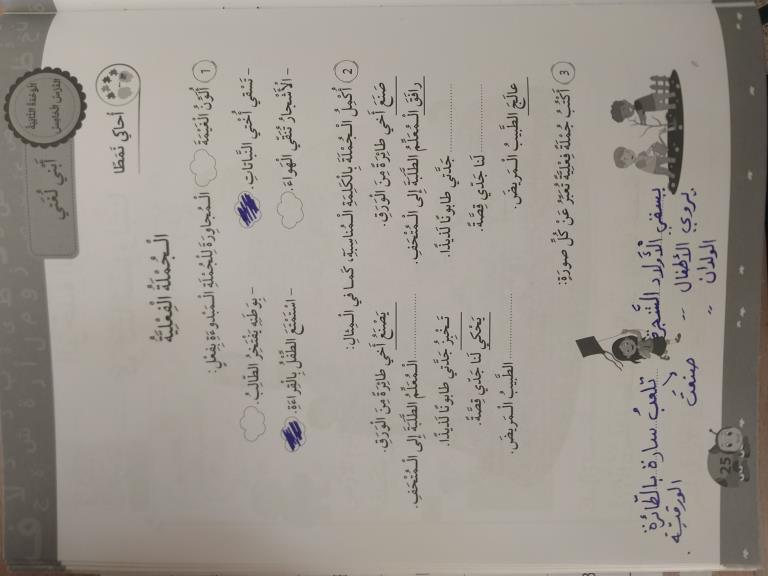 الْوَحْدَةُ الثَّانِيَةُ
الدَّرْسُ الْخَامِسُ
أَبْنِي لُغَتِي
أُحَاكِي نَمَطًا
الْجُمْلَةُ الْفِعْلِيَّةُ
1 أُلَوِّنُ الْغَيْمَةَ الْمُجَاوِرَةَ لِلْجُمْلَةِ الْمَبْدُوءَةِ بِفِعْلٍ:
- تَسْقِي أُخْتِي النَّبَاتَاتِ. - بِوَطَنِهِ يَفْتَخِرُ الطَّالِبُ.
- الْأَشْجَارُ تُنَقِّي الْهَوَاءَ. - اسْتَمْتَعَ الطِّفْلُ بِالْقِرَاءَةِ.
2 أُكْمِلُ الْجُمْلَةَ بِالْكَلِمَةِ الْمُنَاسِبَةِ، كَمَا فِي الْمِثَالِ:
صَنَعَ أَخِي طَائِرَةً مِنَ الْوَرَقِ. يَصْنَعُ أَخِي طَائِرَةً مِنَ الْوَرَقِ.
رَافَقَ الْمُعَلِّمُ الطَّلَبَةَ إِلَى الْمُتْحَفِ. ............ الْمُعَلِّمُ الطَّلَبَةَ إِلَى الْمُتْحَفِ.
............ جَدَّتِي طَابُونًا لَذِيذًا. تَخْبِزُ جَدَّتِي طَابُونًا لَذِيذًا.
............ لَنَا جَدِّي قِصَّةً. يَحْكِي لَنَا جَدِّي قِصَّةً.
عَالَجَ الطَّبِيبُ الْمَرِيضَ. ............ الطَّبِيبُ الْمَرِيضَ.
3 أَكْتُبُ جُمْلَةً فِعْلِيَّةً تُعَبِّرُ عَنْ كُلِّ صُورَةٍ:
يسقي الأولاد الشّجرة
يروي الأطفال
الولدان
تلعبُ سارة بالطّائرة
صنعت
الورقيّة.
25